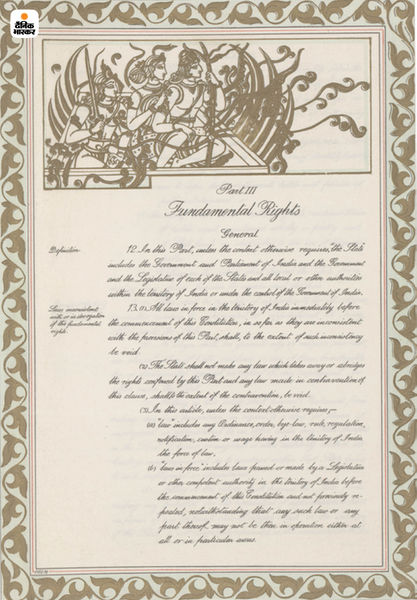 दैनिक
भास्कर
Part III
Fundamental Rights
General
Definition.
12. In this Part, unless the context otherwise requires, "the State"
includes the Government and Parliament of India and the Government
and the Legislature of each of the States and all local or other authorities
within the territory of India or under the control of the Government of India.
Laws inconsistent
with or in derogation
of the fundamental
rights.
13. (1) All laws in force in the territory of India immediately before
the commencement of this Constitution, in so far as they are inconsistent
with the provisions of this Part, shall, to the extent of such inconsistency
be void.
(2) The State shall not make any law which takes away or abridges
the rights conferred by this Part and any law made in contravention of
this clause, shall, to the extent of the contravention, be void.
(3) In this article, unless the context otherwise requires,—
(a) "law" includes any Ordinance, order, bye-law, rule, regulation,
notification, custom or usage having in the territory of India
the force of law;
(b) "laws in force" includes laws passed or made by a Legislature
or other competent authority in the territory of India before
the commencement of this Constitution and not previously re-
pealed, notwithstanding that any such law or any
part thereof may not be then in operation either at
all or in particular areas.